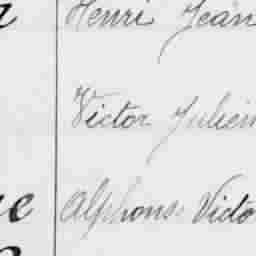 Henri Jean
Victor Julien
Alphons Victo